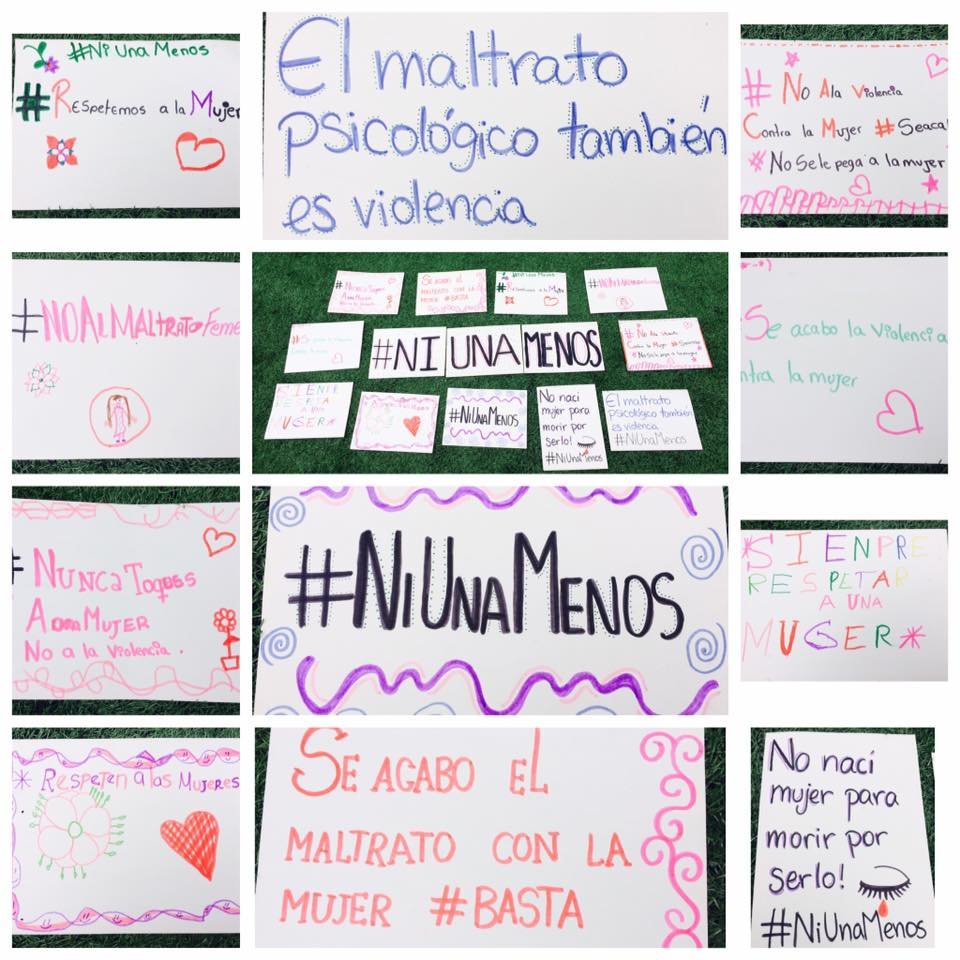 #Ni Una Menos
#Respetemos a la Mujer
El maltrato
psicológico también
es violencia
# No Ala Violencia
Contra la Mujer #Seaca
No Se le pega a la mujer
#NO Al MALTRATO Feme
#Nunca Toques
A ona Mujer
SE AGABO EL
MALTRATO CON LA
MUJER #BASTA
#Ni Una Menos
#Respetemos a la Mujer
#NO Al MALTRATO
#Se acabo la violencia
contra la mujer
#NI UNA MENOS
# No Ala Violencia
Contra la Mujer #Seacabo
No Se le pega a la mujer
SIENPRE
RESPETAR
A UNA
MUGER*
Respeten a las Mujeres
#NiUnaMenos
No nací
mujer para
morir por
serlo!
#NiUnaMenos
El maltrato
psicológico también
es violencia
#NiUnaMenos
Se acabo la violencia
ntra la mujer
# Nunca Toques
A ona Mujer
No a la violencia.
#NiUnaMenos
*SIENPRE
RESPETAR
A UNA
MUGER*
* Respeten a las Mujeres
SE AGABO EL
MALTRATO CON LA
MUJER #BASTA
No nací
mujer para
morir por
serlo!
#NiUnaMenos